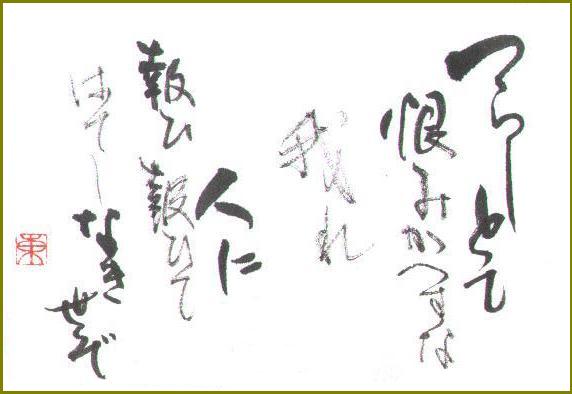 つらしとて
恨みかへすな
我れ
人に
報ひ報ひて
はてしなき世ぞ
東